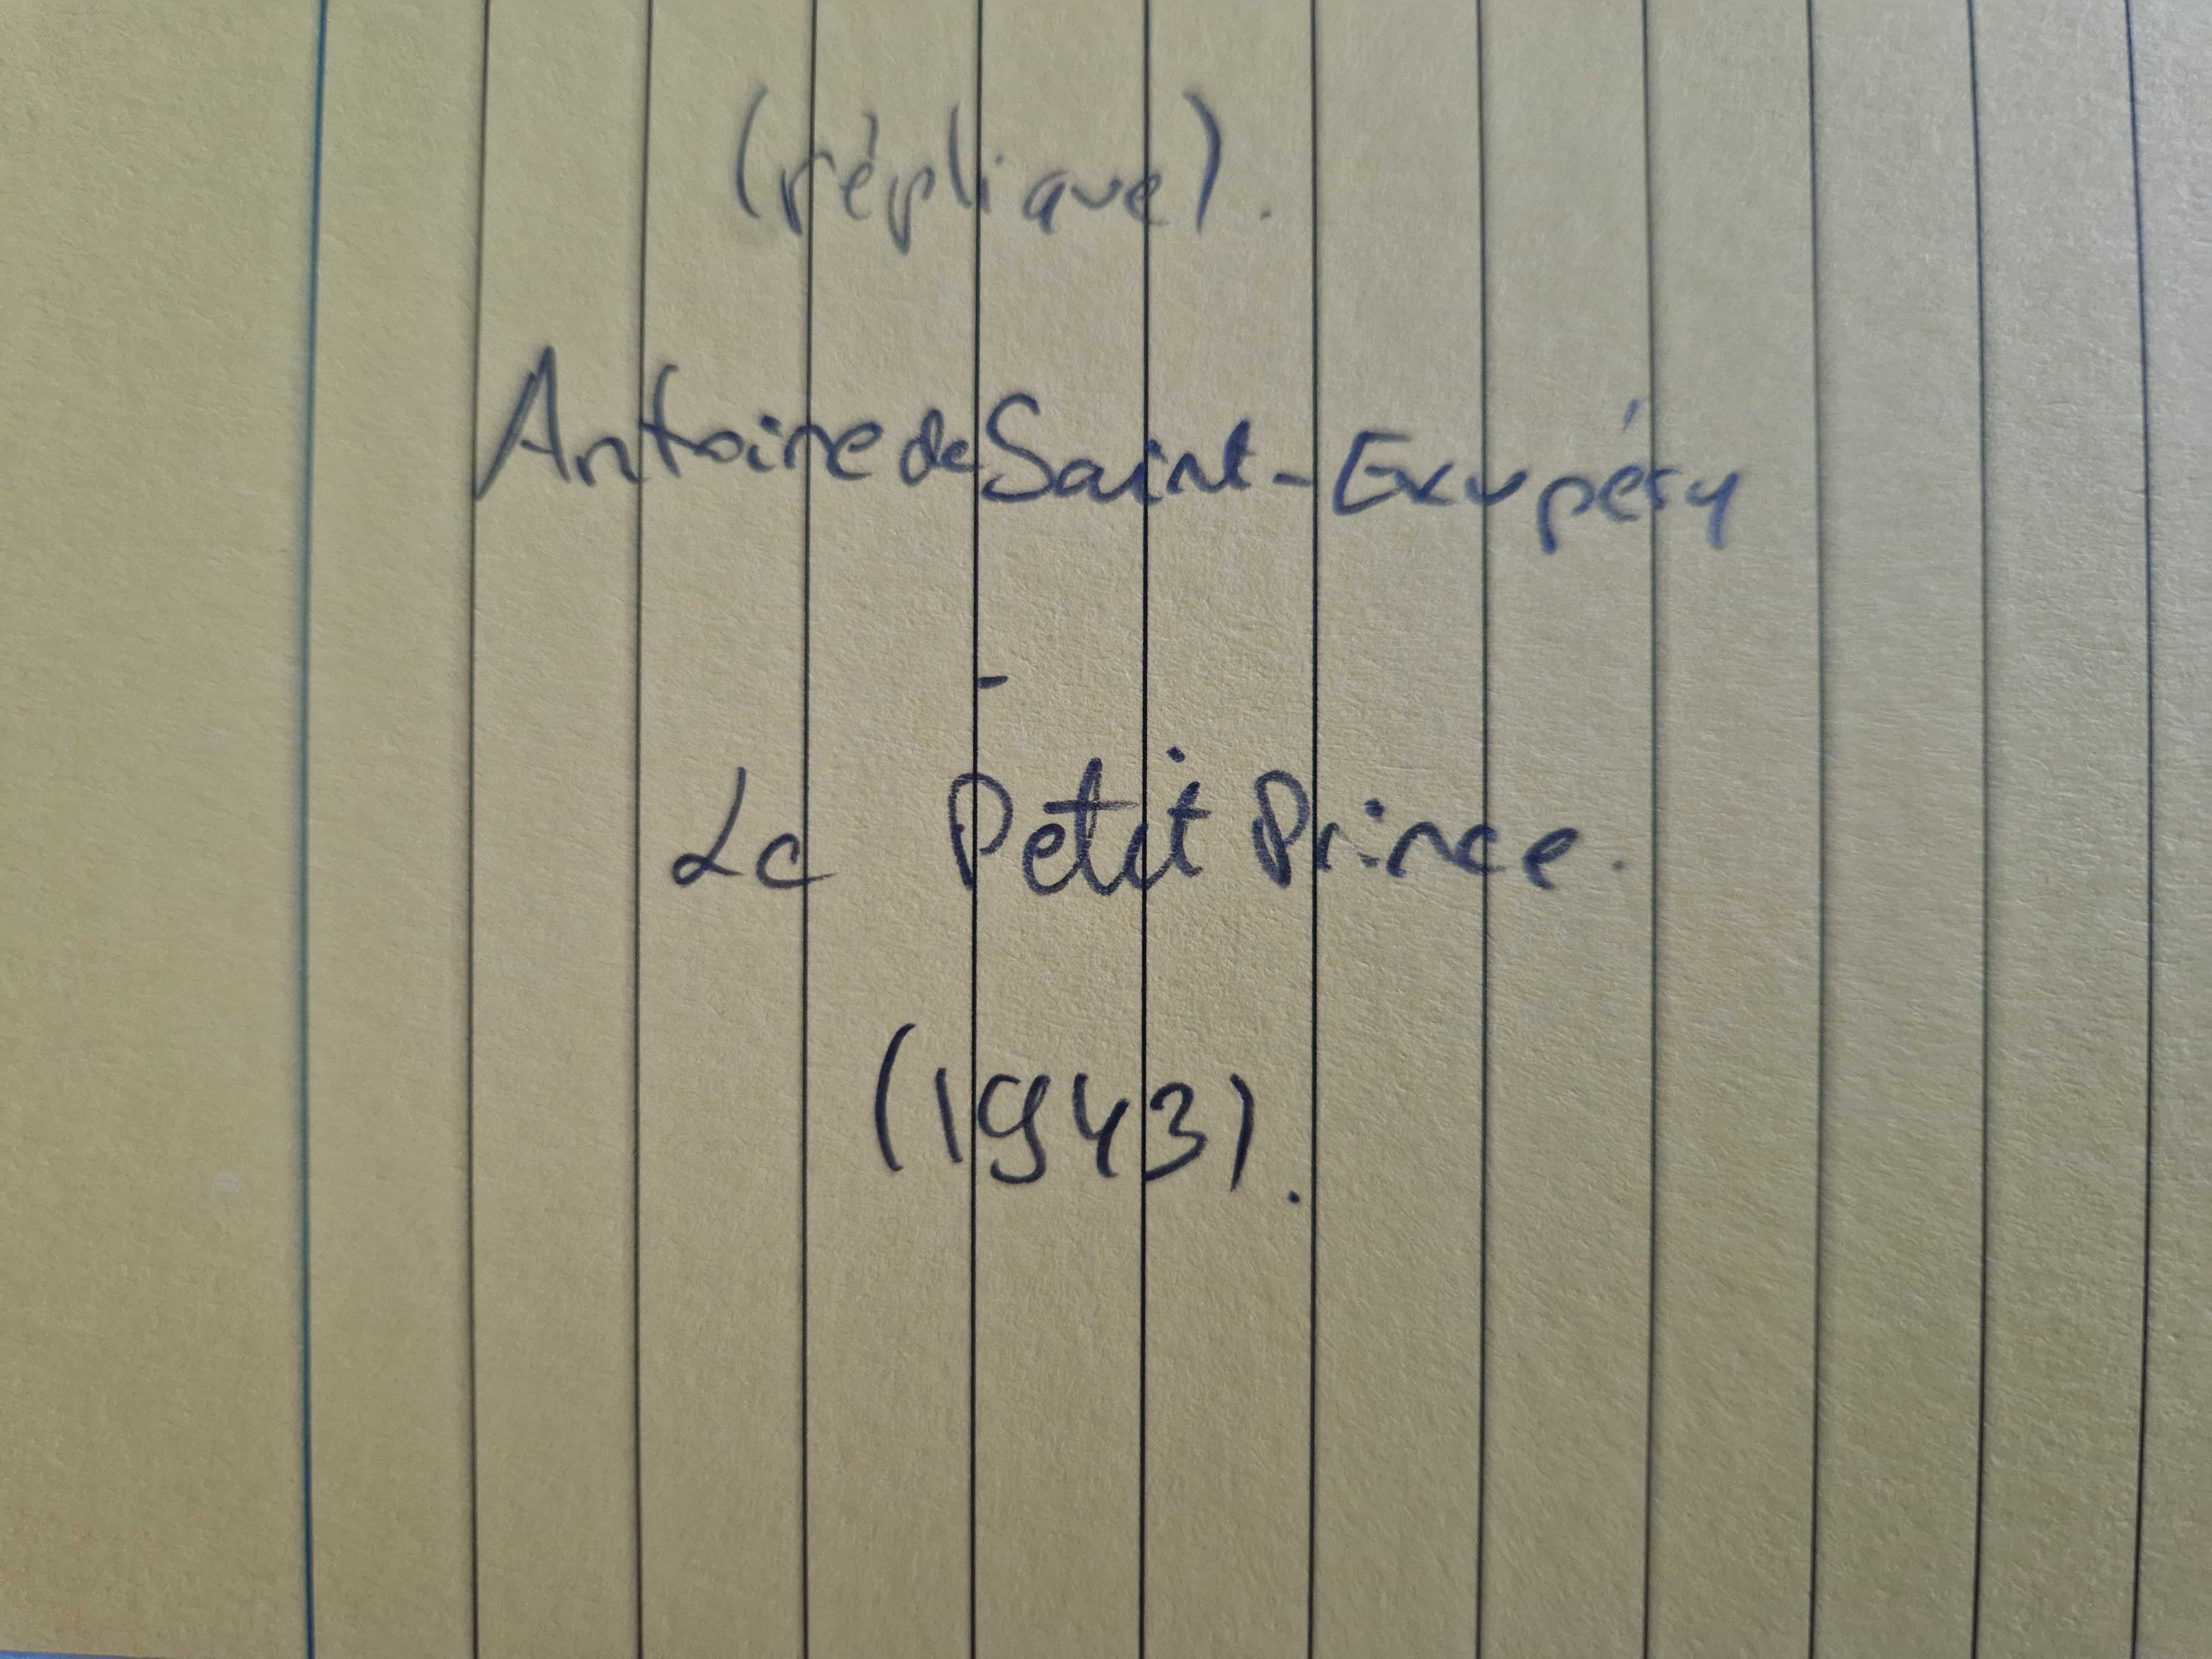 (réplique).
Antoine de Saint-Exupéry
-
Le Petit Prince.
(1943).